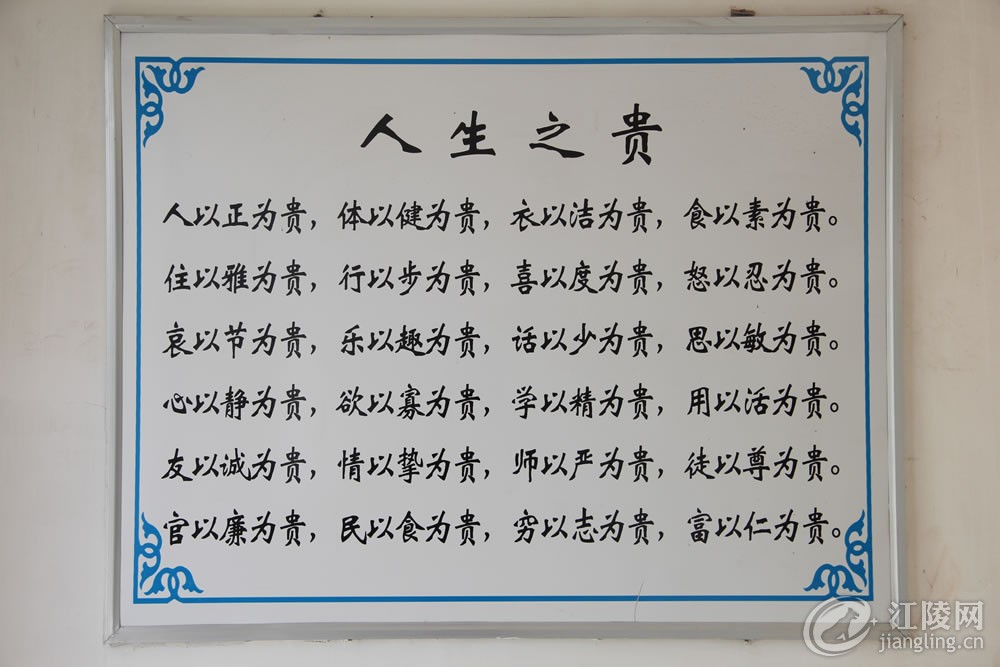 人生之贵
人以正为贵，体以健为贵，衣以洁为贵，食以素为贵。
住以雅为贵，行以步为贵，喜以度为贵，怒以忍为贵。
哀以节为贵，乐以趣为贵，话以少为贵，思以敏为贵。
心以静为贵，欲以寡为贵，学以精为贵，用以活为贵。
友以诚为贵，情以挚为贵，师以严为贵，徒以尊为贵。
官以廉为贵，民以食为贵，穷以志为贵，富以仁为贵。
江陵网
jiangling.cn